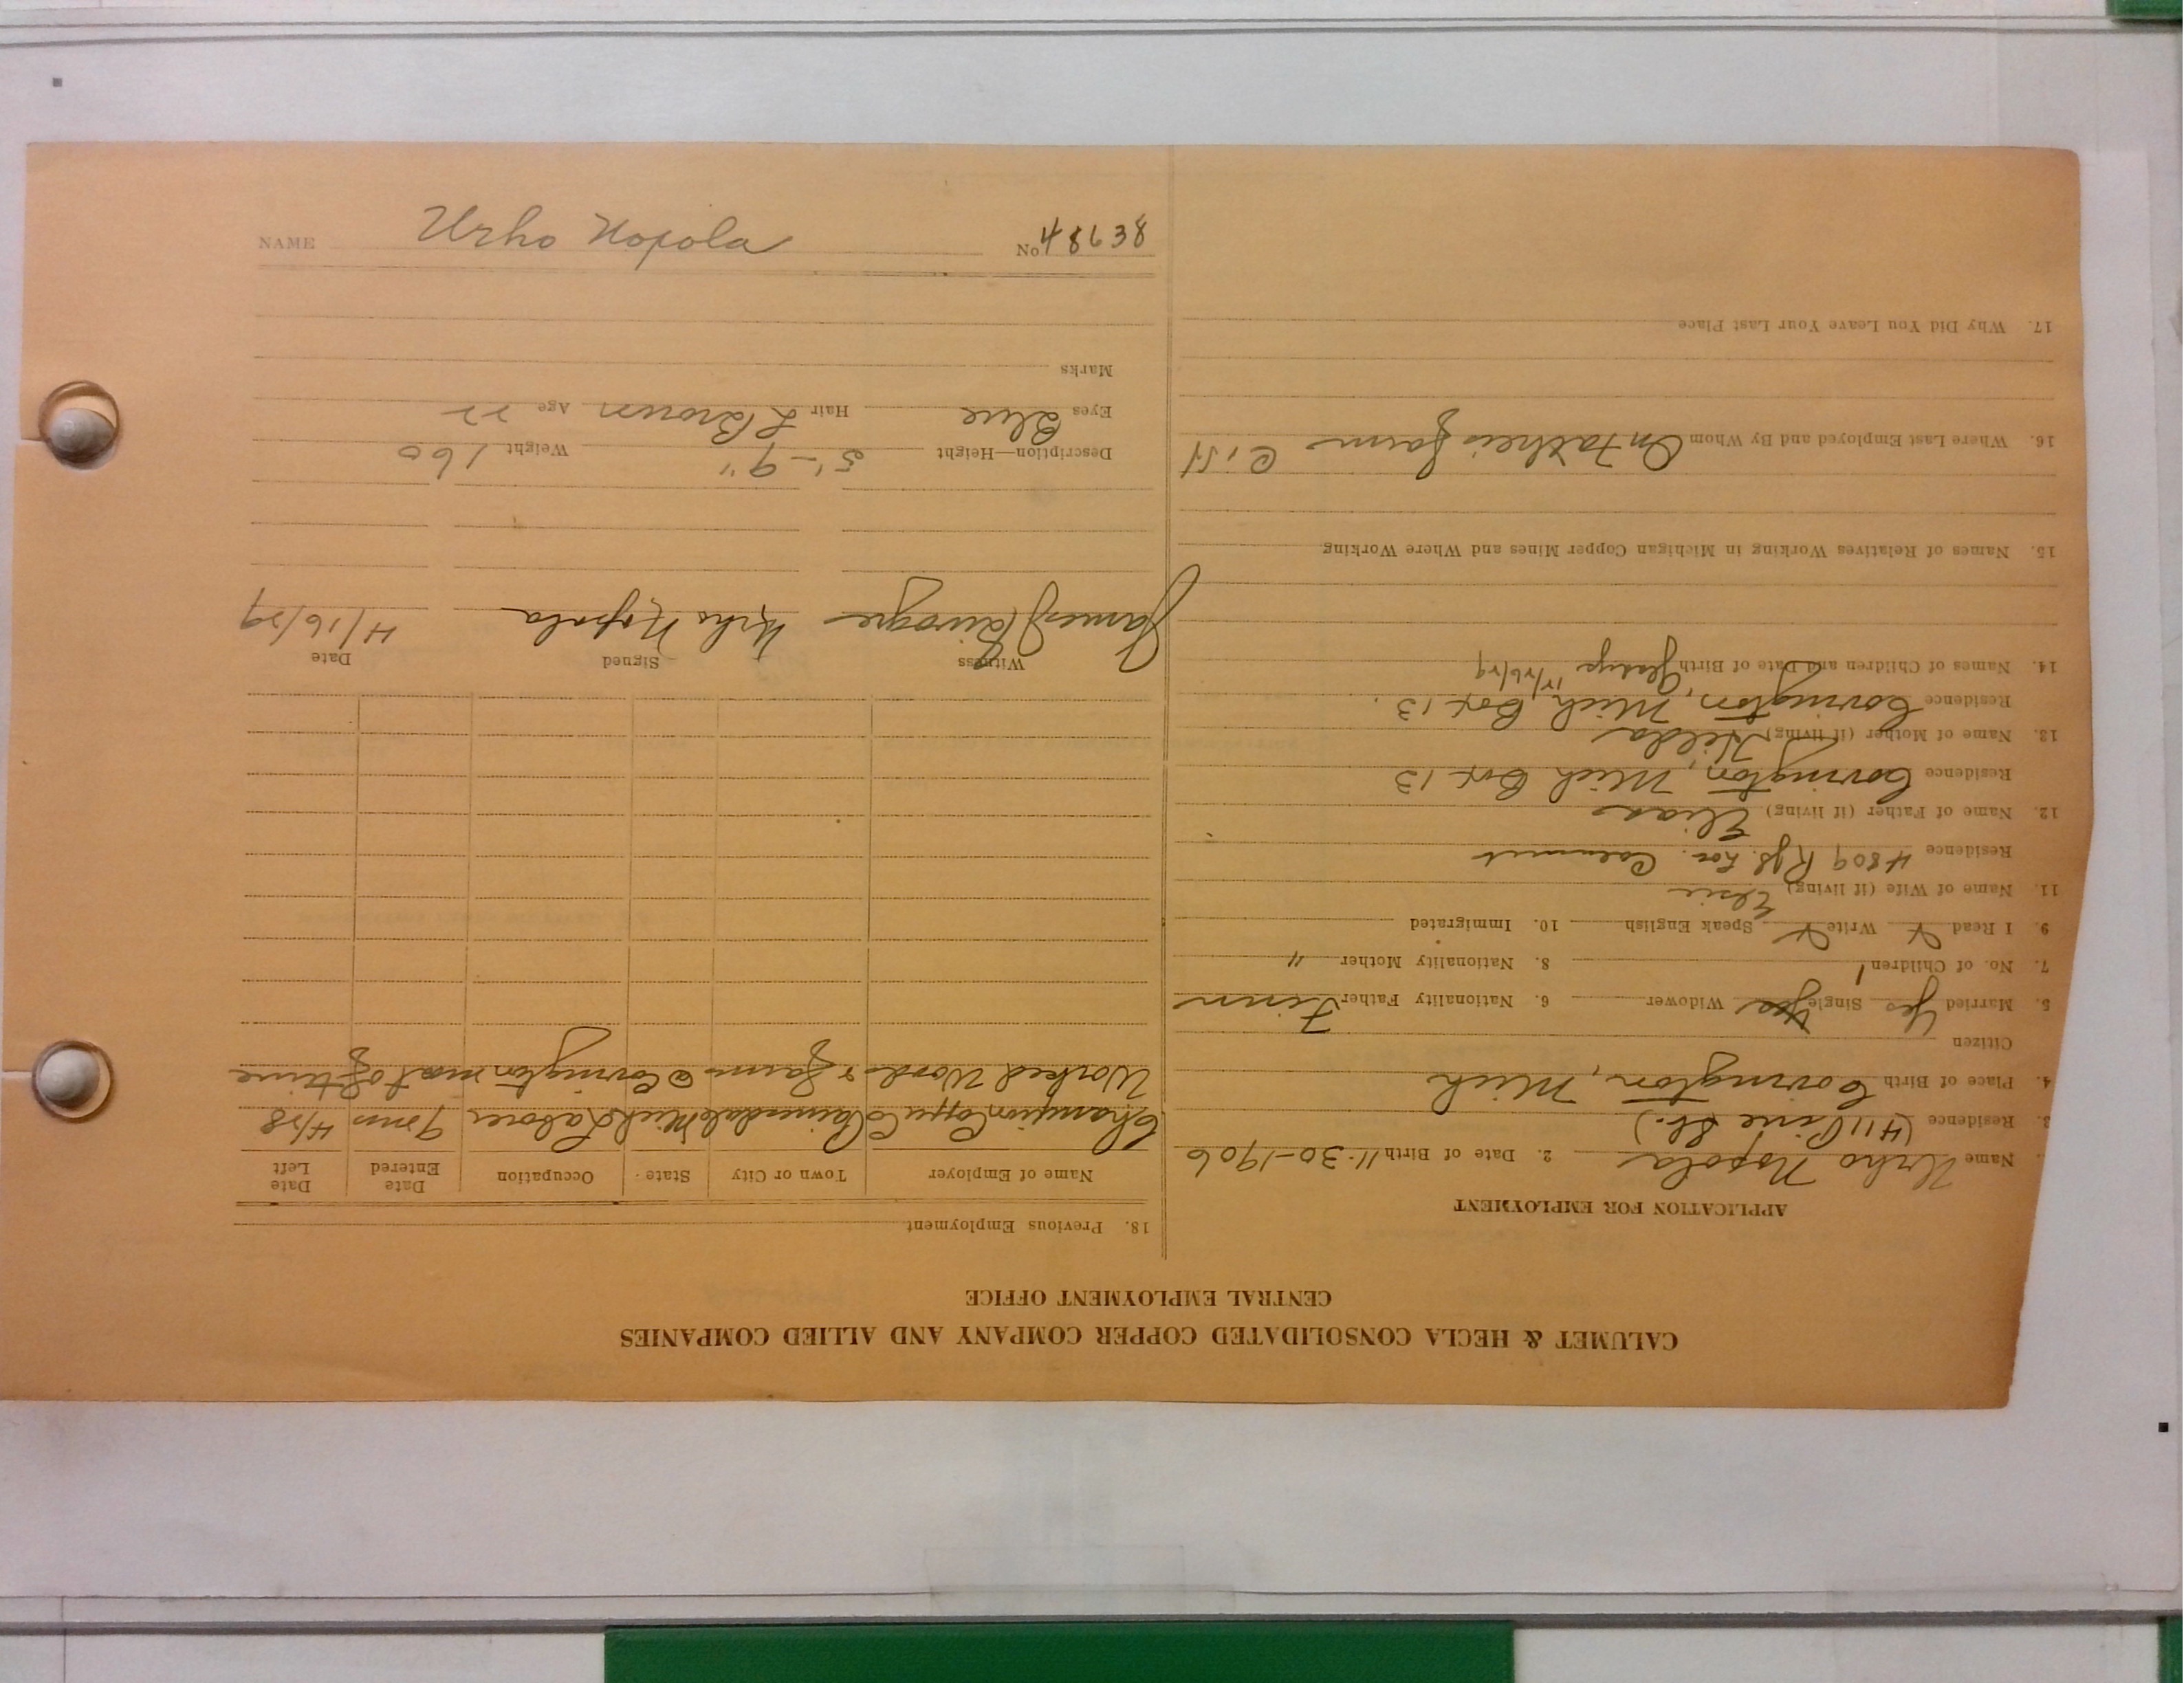 NAME Urho Nopola No 48638
CALUMET & HECLA CONSOLIDATED COPPER COMPANY AND ALLIED COMPANIES
CENTRAL EMPLOYMENT OFFICE
APPLICATION FOR EMPLOYMENT
Name Urho Nopola 2. Date of Birth 11-30-1906
3. Residence (411 Pine St.)
4. Place of Birth Covington, Mich
Citizen
5. Married Yes Single Yes Widower 6. Nationality Father Finn
7. No. of Children 1 8. Nationality Mother "
9. I Read Write Speak English 10. Immigrated
11. Name of Wife (if living) Elsie
Residence 4809 Calumet
12. Name of Father (if living) Elias
Residence Covington, Mich Box 13
13. Name of Mother (if living) Hilda
Residence Covington, Mich, Box 13.
14. Names of Children and Date of Birth
15. Names of Relatives Working in Michigan Copper Mines and Where Working
16. Where Last Employed and By Whom On Fathers farm
17. Why Did You Leave Your Last Place
18. Previous Employment
Name of Employer Town or City State Occupation Date Entered Date Left
Champion Copper Co Painesdale Mich Laborer 9 mn 4/28
Worked Woods & farm @ Covington most of time
Witness Signed Date
James Urho Nopola 4/16/29
Description—Height 5'-9" Weight 160
Eyes Blue Hair L Brown Age 22
Marks